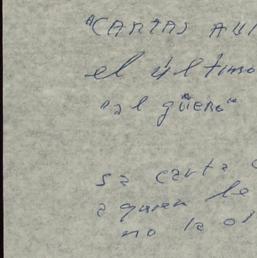 "CARTAS AU
el último
"al güero"
sa carta
a quien le
no la ol